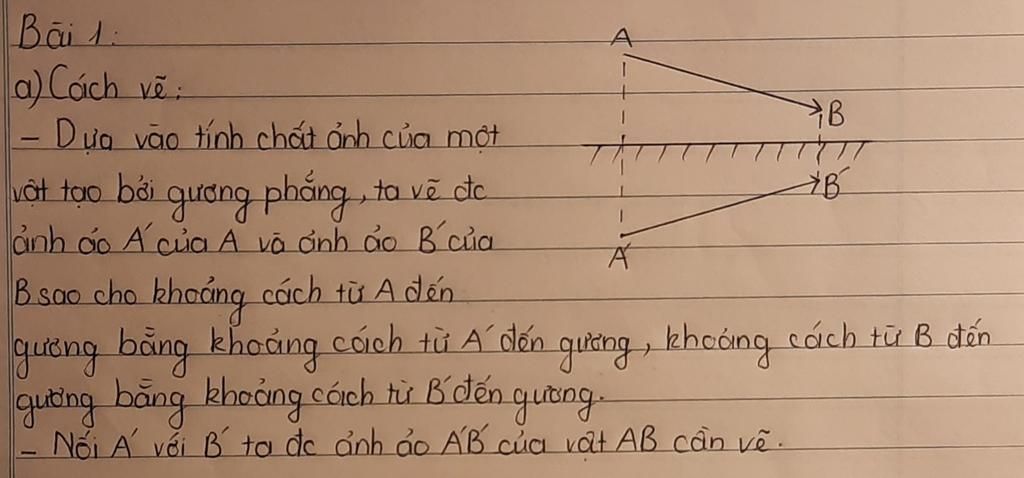 Bài 1:
a) Cách vẽ:
- Dựa vào tính chất ảnh của một
vật tạo bởi gương phẳng, ta vẽ đc
ảnh ảo A' của A và ảnh ảo B' của
B sao cho khoảng cách từ A đến
gương bằng khoảng cách từ A' đến gương, khoảng cách từ B đến
gương bằng khoảng cách từ B' đến gương.
- Nối A' với B' ta đc ảnh ảo A'B' của vật AB cần vẽ.
A
B
B'
A'